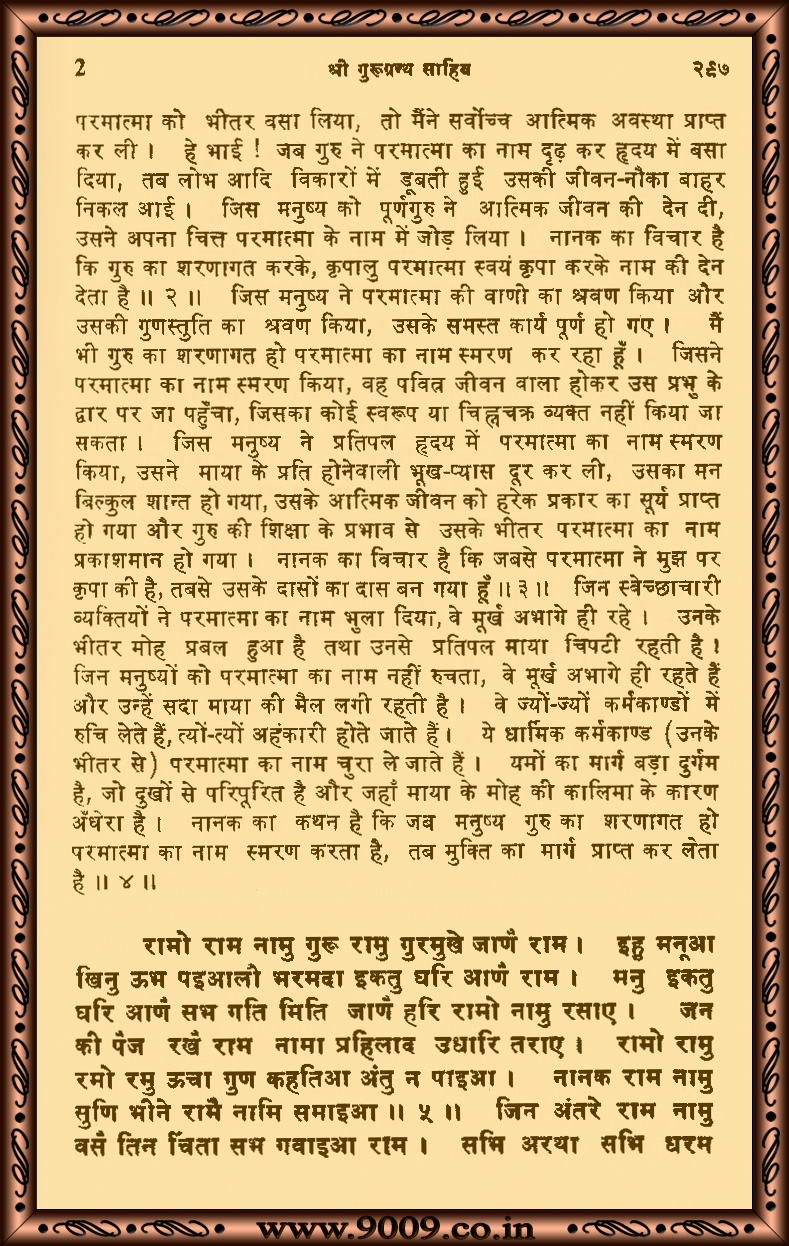 2 श्री गुरूग्रन्थ साहिब २९७
परमात्मा को भीतर बसा लिया, तो मैंने सर्वोच्च आत्मिक अवस्था प्राप्त
कर ली । हे भाई ! जब गुरु ने परमात्मा का नाम दृढ़ कर हृदय में बसा
दिया, तब लोभ आदि विकारों में डूबती हुई उसकी जीवन-नौका बाहर
निकल आई । जिस मनुष्य को पूर्णगुरु ने आत्मिक जीवन की देन दी,
उसने अपना चित्त परमात्मा के नाम में जोड़ लिया । नानक का विचार है
कि गुरु का शरणागत करके, कृपालु परमात्मा स्वयं कृपा करके नाम की देन
देता है ॥ २ ॥ जिस मनुष्य ने परमात्मा की वाणी का श्रवण किया और
उसकी गुणस्तुति का श्रवण किया, उसके समस्त कार्य पूर्ण हो गए । मैं
भी गुरु का शरणागत हो परमात्मा का नाम स्मरण कर रहा हूँ । जिसने
परमात्मा का नाम स्मरण किया, वह पवित्र जीवन वाला होकर उस प्रभु के
द्वार पर जा पहुँचा, जिसका कोई स्वरूप या चिह्नचक्र व्यक्त नहीं किया जा
सकता । जिस मनुष्य ने प्रतिपल हृदय में परमात्मा का नाम स्मरण
किया, उसने माया के प्रति होनेवाली भूख-प्यास दूर कर ली, उसका मन
बिल्कुल शान्त हो गया, उसके आत्मिक जीवन को हरेक प्रकार का सूर्य प्राप्त
हो गया और गुरु की शिक्षा के प्रभाव से उसके भीतर परमात्मा का नाम
प्रकाशमान हो गया । नानक का विचार है कि जबसे परमात्मा ने मुझ पर
कृपा की है, तबसे उसके दासों का दास बन गया हूँ ॥ ३ ॥ जिन स्वेच्छाचारी
व्यक्तियों ने परमात्मा का नाम भुला दिया, वे मूर्ख अभागे ही रहे । उनके
भीतर मोह प्रबल हुआ है तथा उनसे प्रतिपल माया चिपटी रहती है ।
जिन मनुष्यों को परमात्मा का नाम नहीं रुचता, वे मूर्ख अभागे ही रहते हैं
और उन्हें सदा माया की मैल लगी रहती है । वे ज्यों-ज्यों कर्मकाण्डों में
रुचि लेते हैं, त्यों-त्यों अहंकारी होते जाते हैं । ये धार्मिक कर्मकाण्ड (उनके
भीतर से) परमात्मा का नाम चुरा ले जाते हैं । यमों का मार्ग बड़ा दुर्गम
है, जो दुखों से परिपूरित है और जहाँ माया के मोह की कालिमा के कारण
अँधेरा है । नानक का कथन है कि जब मनुष्य गुरु का शरणागत हो
परमात्मा का नाम स्मरण करता है, तब मुक्ति का मार्ग प्राप्त कर लेता
है ॥ ४ ॥
रामो राम नामु गुरू रामु गुरमुखे जाणै राम । इहु मनूआ
खिनु ऊभ पइआली भरमदा इकतु घरि आणै राम । मनु इकतु
घरि आणै सभ गति मिति जाणै हरि रामो नामु रसाए । जन
की पैज रखै राम नामा प्रहिलाद उधारि तराए । रामो रामु
रमो रमु ऊचा गुण कहतिआ अंतु न पाइआ । नानक राम नामु
सुणि भीने रामै नामि समाइआ ॥ ५ ॥ जिन अंतरे राम नामु
वसै तिन चिंता सभ गवाइआ राम । सभि अरथा सभि धरम
www.9009.co.in